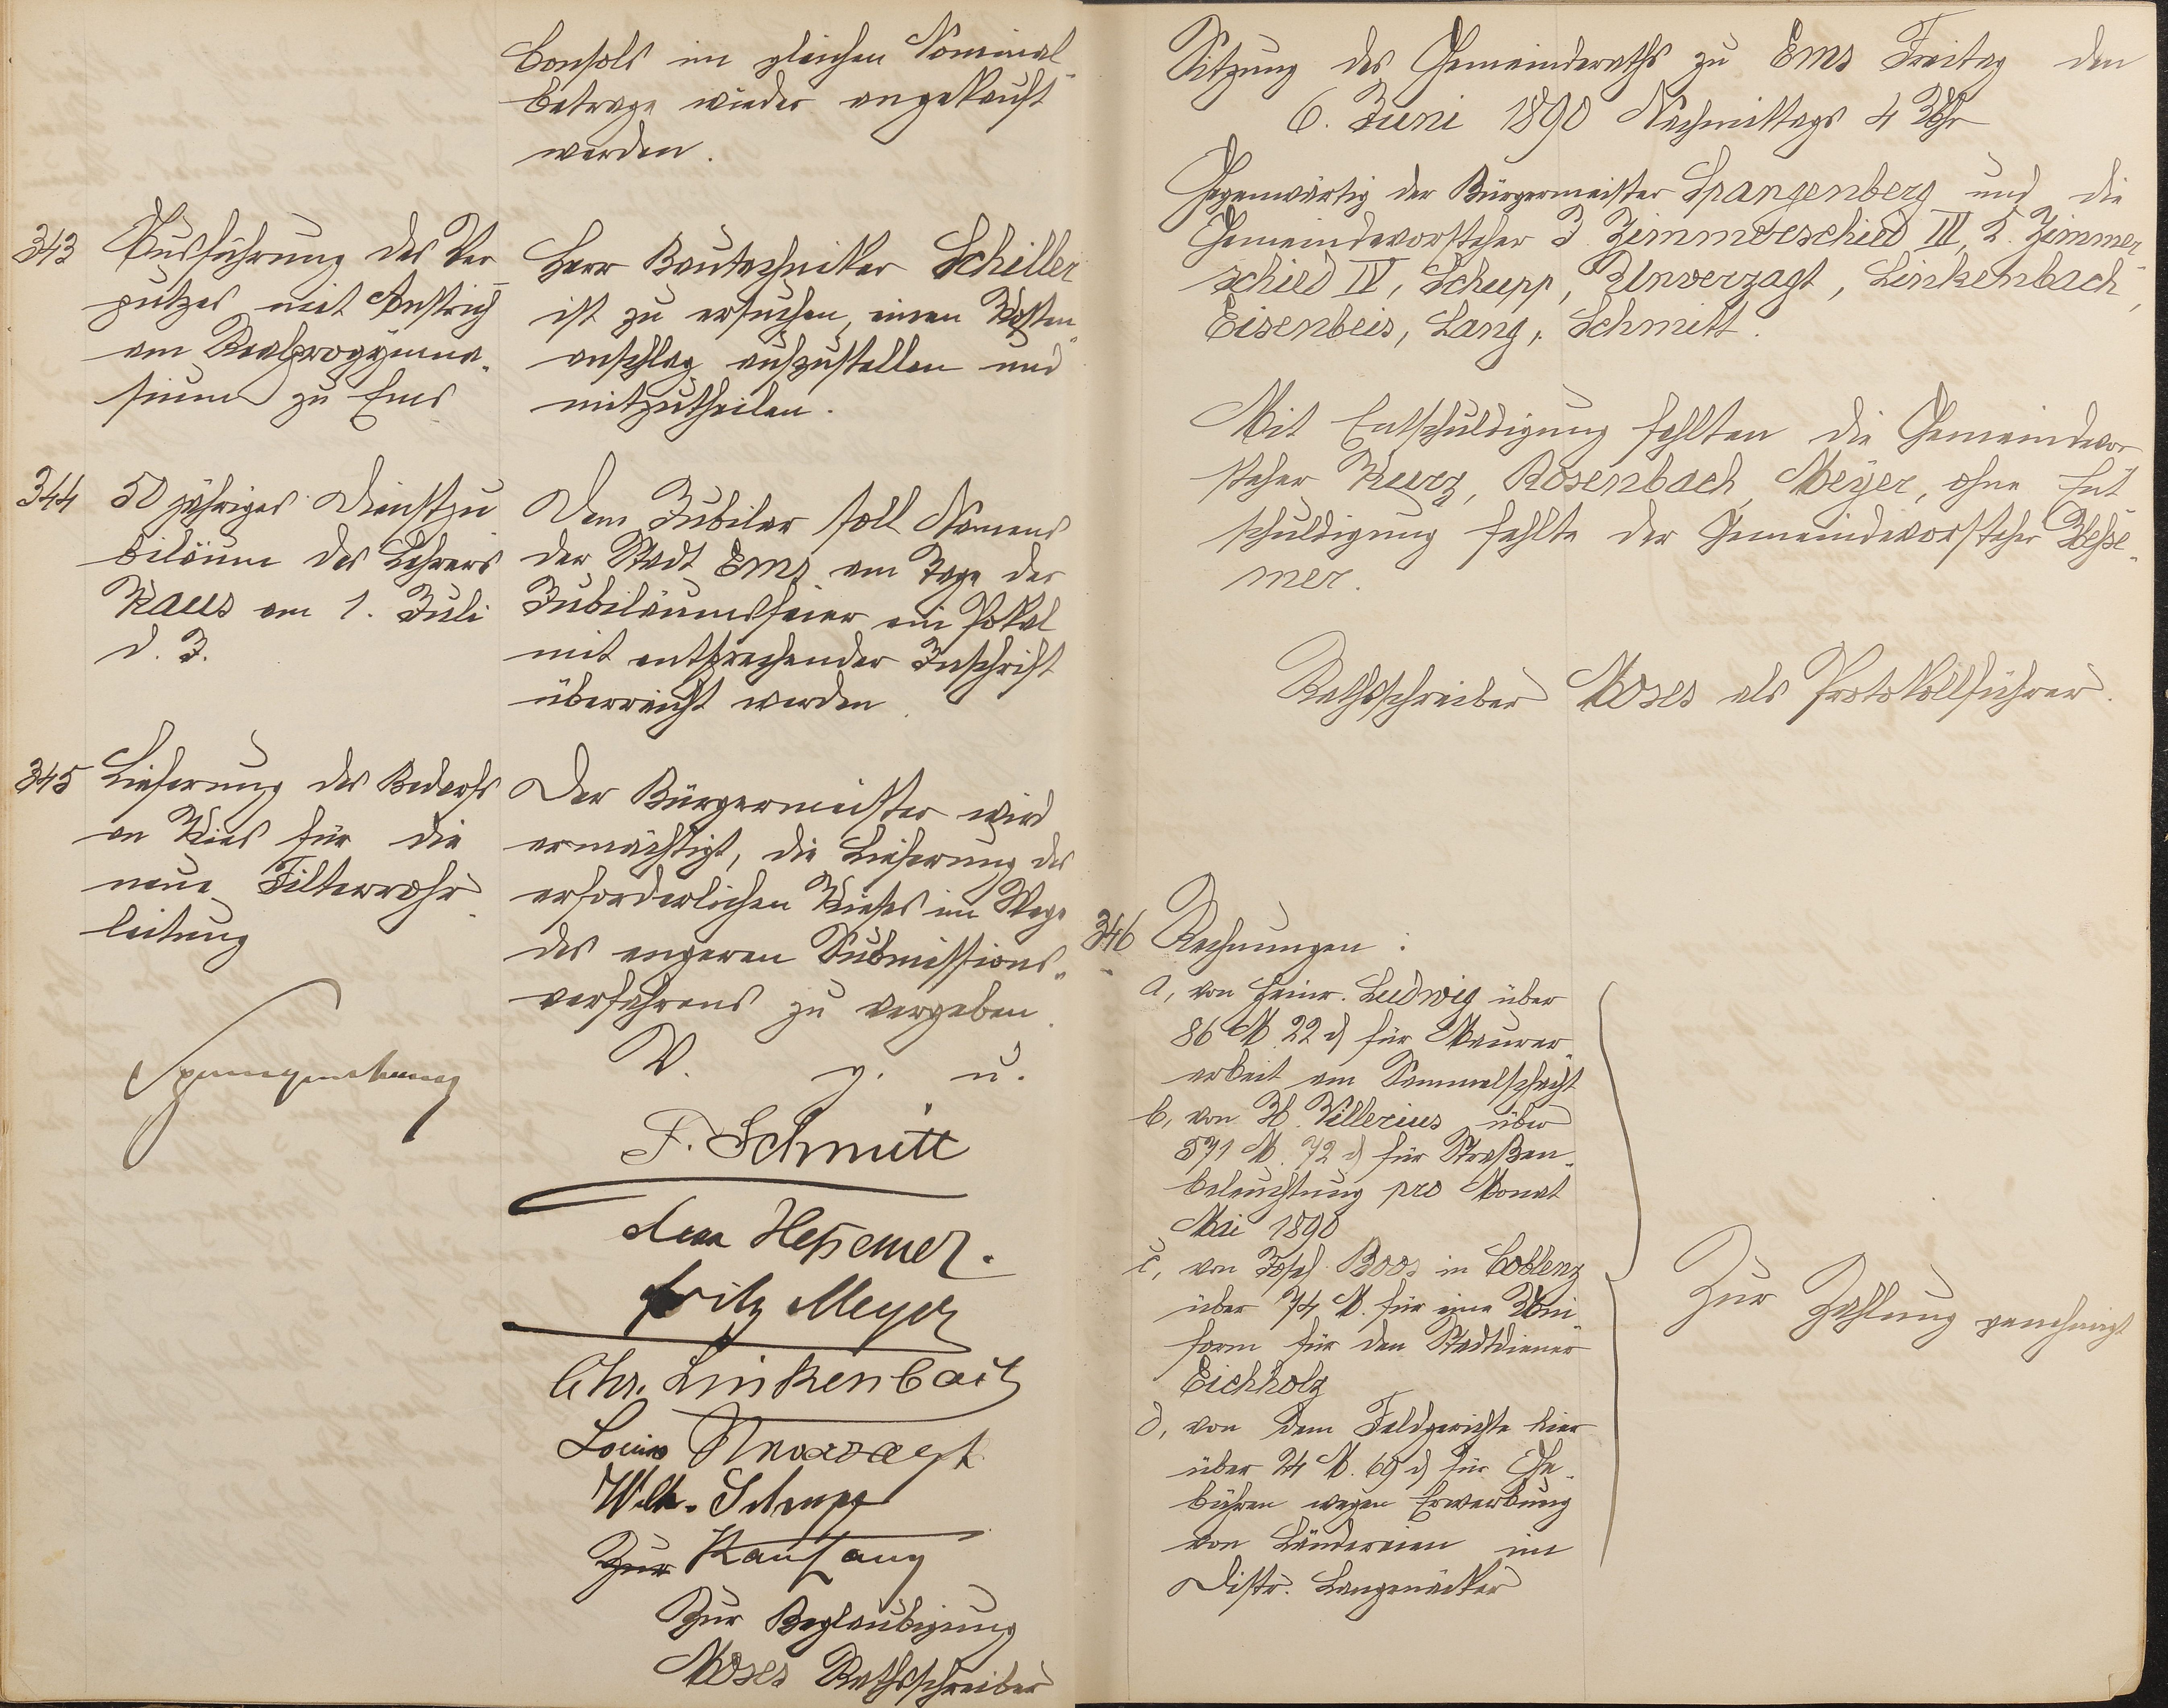 Consols im gleichen Nominal-
betrage wieder angekauft
werden.
343
Ausführung des Ver-
putzes mit Anstrich
am Realprogymna-
sium zu Ems
Herr Bautechniker Schiller
ist zu ersuchen, einen Kosten-
anschlag aufzustellen und
mitzutheilen.
344
50 jähriges Dienstju
biläum des Lehrers
Kaus am 1. Juli
d. J.
Dem Jubilar soll Namens
der Stadt Ems am Tage der
Jubiläumsfeier ein Pokal
mit entsprechender Inschrift
überreicht werden.
345
Lieferung des Bedarfs
an Kies für die
neue Filterrohr-
leitung
Der Bürgermeister wird
ermächtigt, die Lieferung des
erforderlichen Kieses im Wege
des engeren Submissions-
verfahrens zu vergeben.
V. g. u.
Spangenberg
F. Schmitt
Heßemer.
Fritz Meyer
Chr. Linkenbach
Louis Unverzagt
Wilh. Schupp
Zur Karl Lang
Zur Beglaubigung
Moses Rathsschreiber
Sitzung des Gemeinderaths zu Ems Freitag den
6. Juni 1890 Nachmittags 4 Uhr
Gegenwärtig der Bürgermeister Spangenberg und die
Gemeindevorsteher J. Zimmerschied III, L. Zimmer-
schied IV, Schupp, Unverzagt, Linkenbach,
Eisenbeis, Lang, Schmitt.
Mit Entschuldigung fehlten die Gemeindevor
steher Kurz, Rosenbach, Meyer, ohne Ent
schuldigung fehlte der Gemeindevorsteher Heße-
mer.
Rathsschreiber Moses als Protokollführer.
346
Rechnungen:
a, von Heinr. Ludwig über
86 M. 22 ₰ für Maurer-
arbeit am Sammelschacht
b, von H. Villerius über
571 M. 72 ₰ für Straßen-
beleuchtung pro Monat
Mai 1890
c, von Josef Boos in Coblenz
über 74 M. für eine Uni-
form für den Stadtdiener
Eichholz
d, von dem Feldgerichte hier
über 24 M. 69 ₰ für Ge-
bühren wegen Erwerbung
von Ländereien im
Distr. Langenäcker
Zur Zahlung genehmigt